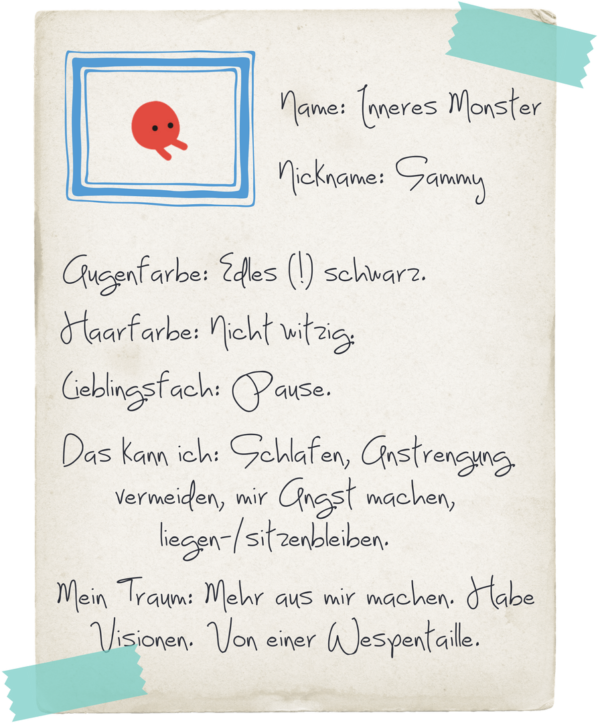 Name: Inneres Monster
Nickname: Sammy
Augenfarbe: Edles (!) schwarz.
Haarfarbe: Nicht witzig.
Lieblingsfach: Pause.
Das kann ich: Schlafen, Anstrengung
vermeiden, mir Angst machen,
liegen-/sitzenbleiben.
Mein Traum: Mehr aus mir machen. Habe
Visionen. Von einer Wespentaille.